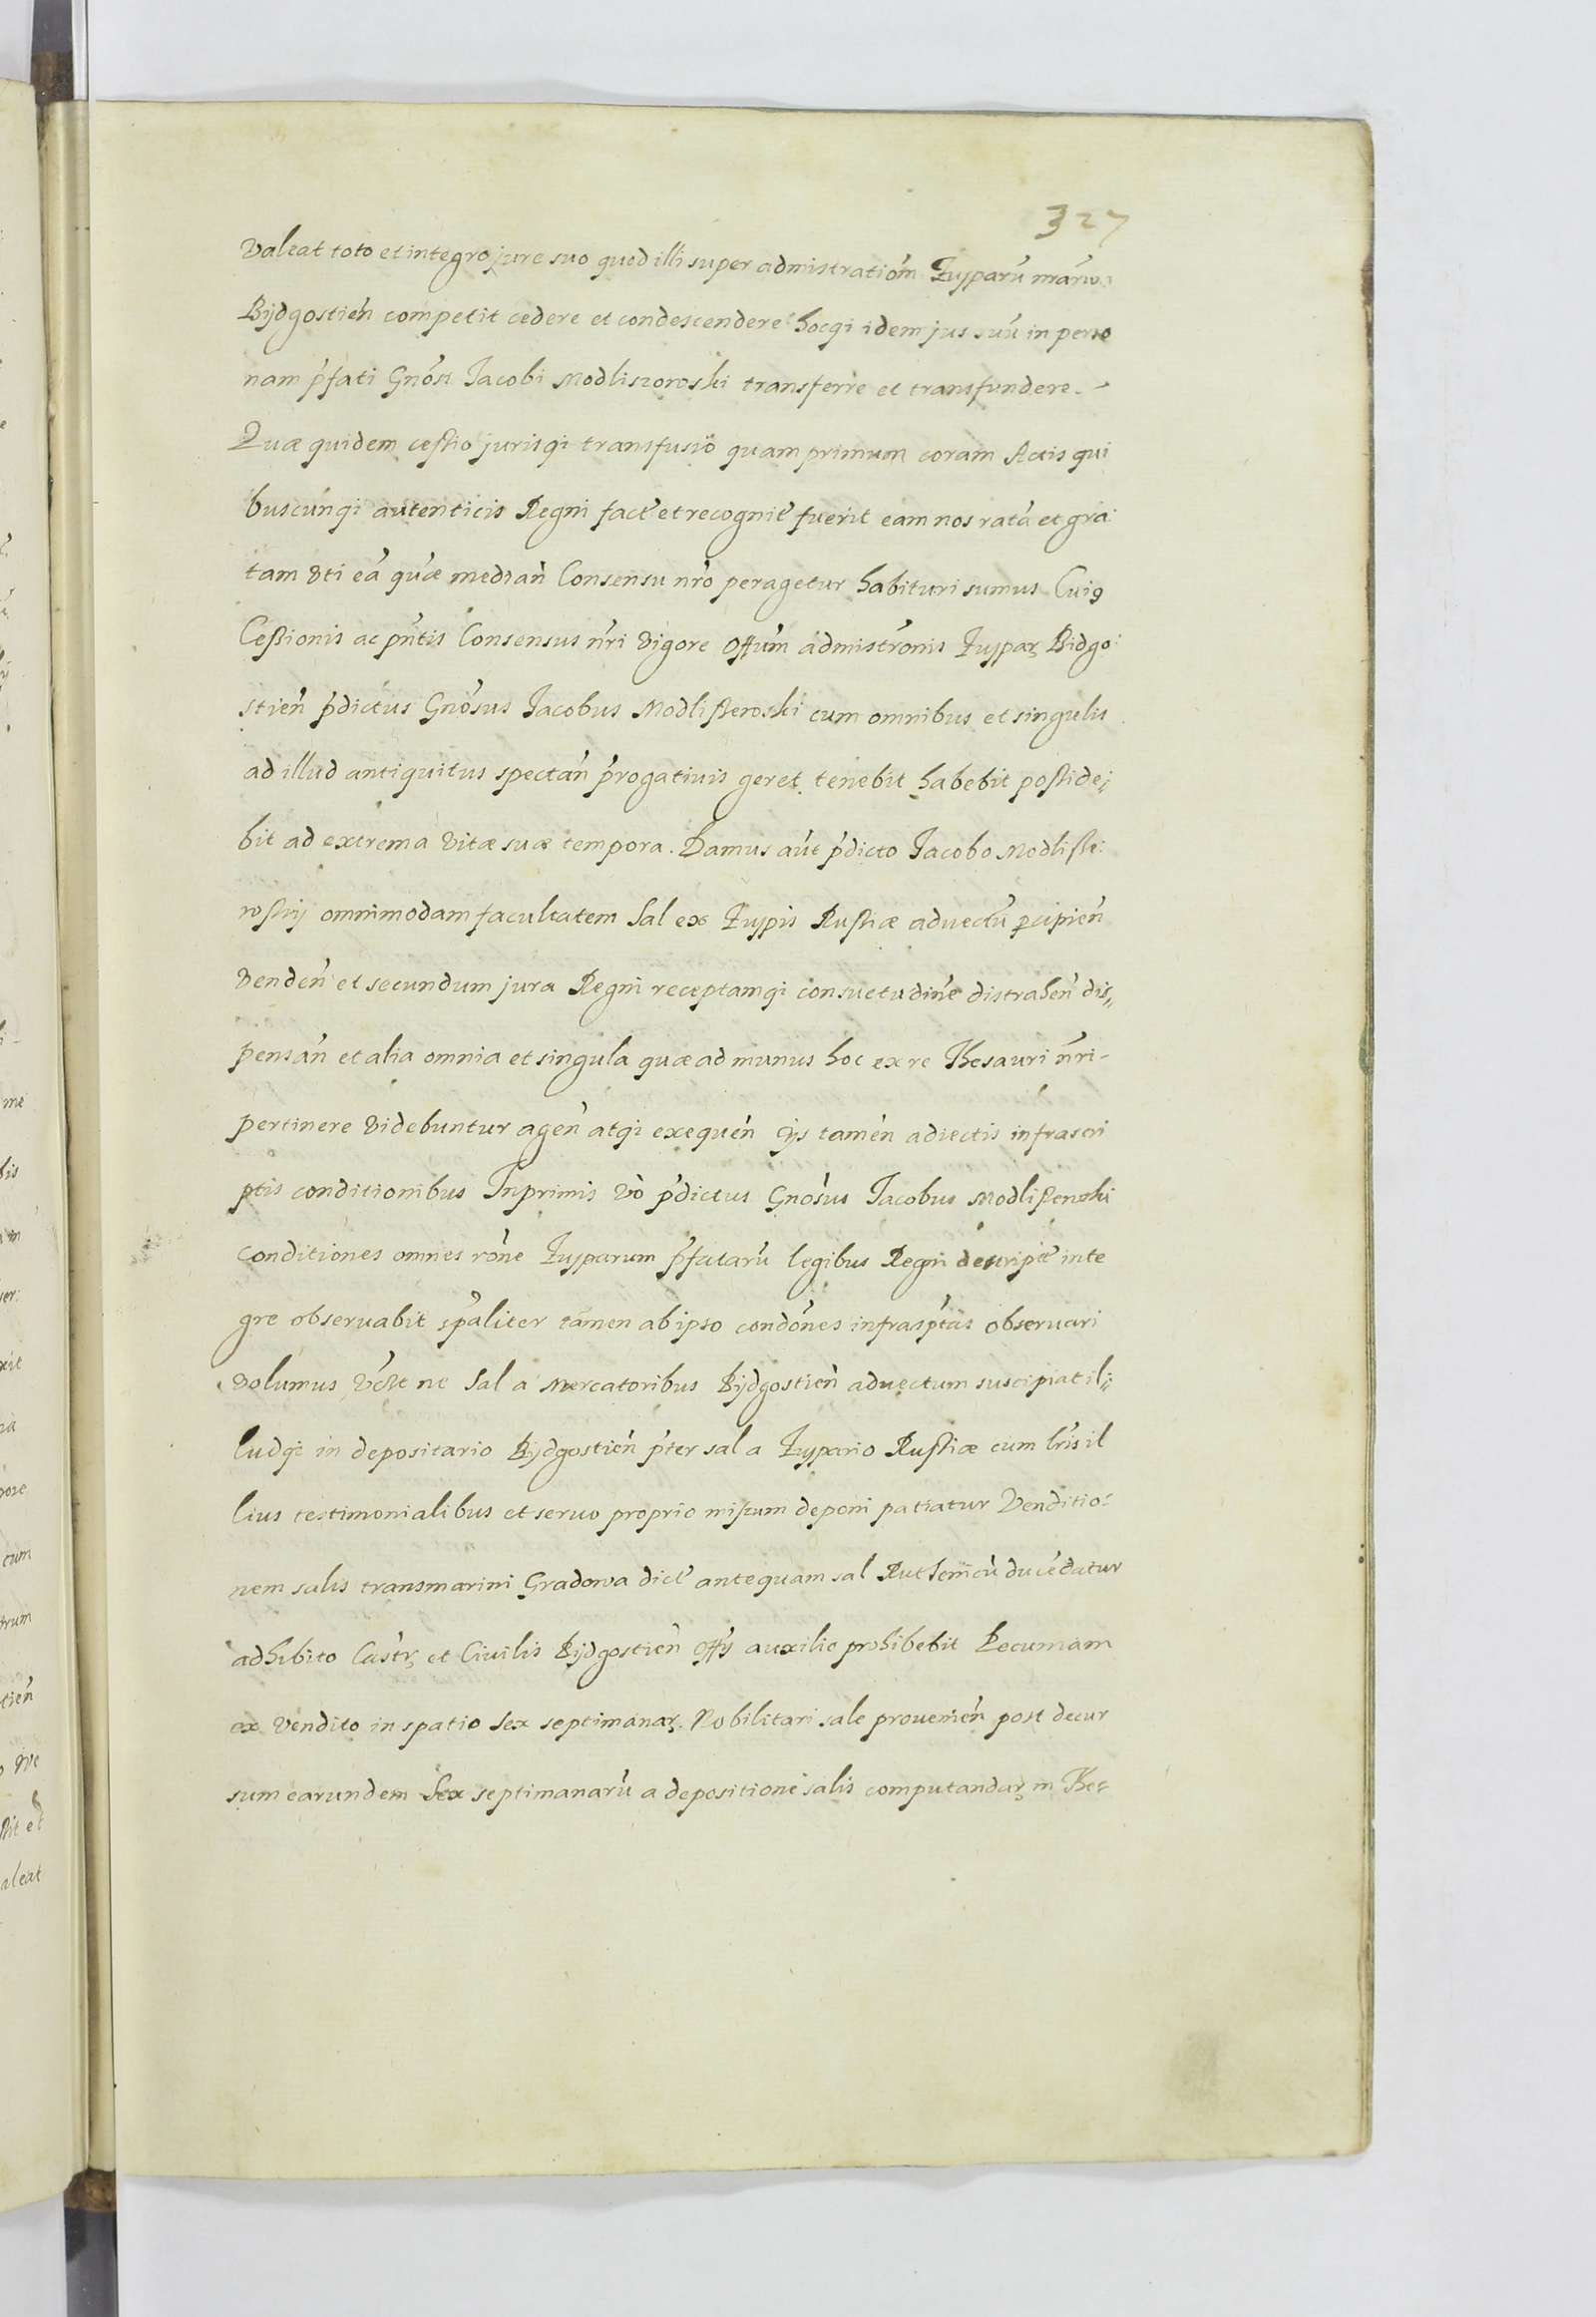 327
valeat toto et integro jure suo quod illi super admistratiom̃ Zupparũ nrarũ
Bydgostień competit cedere et condescendere hocq; idem jus suũ in perso
nam p̃fati Gnõsi Jacobi Modliszowski transferre et transfundere.
Quæ quidem cessio jurisq; transfusio quam primum coram Actis qui
buscunq; autenticis Regni fact̃ et recognit̃ fuerit eam nos ratã et gra:
tam uti eã quæ median̄ Consensu nrõ peragetur habituri sumus Cuiꝰ
Cessionis ac pñtis Consensus nr̃i vigore Offum̃ admistrõnis Zuppaꝝ Bidgo:
stień p̃dictus Gnõsus Jacobus Modliszewski cum omnibus et singulis
ad illud antiquitus spectań p̃rogativis geret tenebit habebit posside:
bit ad extrema vitæ suæ tempora. Damus aũt p̃dicto Jacobo Modlisze:
wskij omnimodam facultatem Sal ex Zuppis Russiæ advectũ ꝑcipień
venden̄ et secundum jura Regni receptamq; consuetudinẽ distrahen̄ dis,,
pensan̄ et alia omnia et singula quæ ad munus hoc ex re Thesauri nr̃i
pertinere videbuntur agen̄ atq; exequen̄ ijs tamen adiectis infrascri
ptis conditionibus Inprimis vò p̃dictus Gnosus Jacobus Modliszewski
conditiones omnes rõne Zupparum p̃fatarũ legibus Regni descript̃ inte
gre observabit sp̃aliter tamen ab ipso condõnes infrasp̃tas observari
volumus ne Sal a Mercatoribus Bydgostień advectum suscipiat il:
ludq; in depositario Bydgostień p̃ter sal a Zuppario Russiæ cum lr̃is il
lius testimonialibus et servo proprio missum deponi patiatur Venditio:
nem salis transmarini Gradowa dict̃ antequam sal Ruthenicũ ducẽdatur
adhibito Castrꝭ et Civilis Bydgostień offij auxilio prohibebit Pecuniam
ex vendito in spatio Sex septimanaꝝ Nobilitari sale provenien̄ post decur
sum earundem Sex septimanarũ a depositione salis computandaꝝ in The: